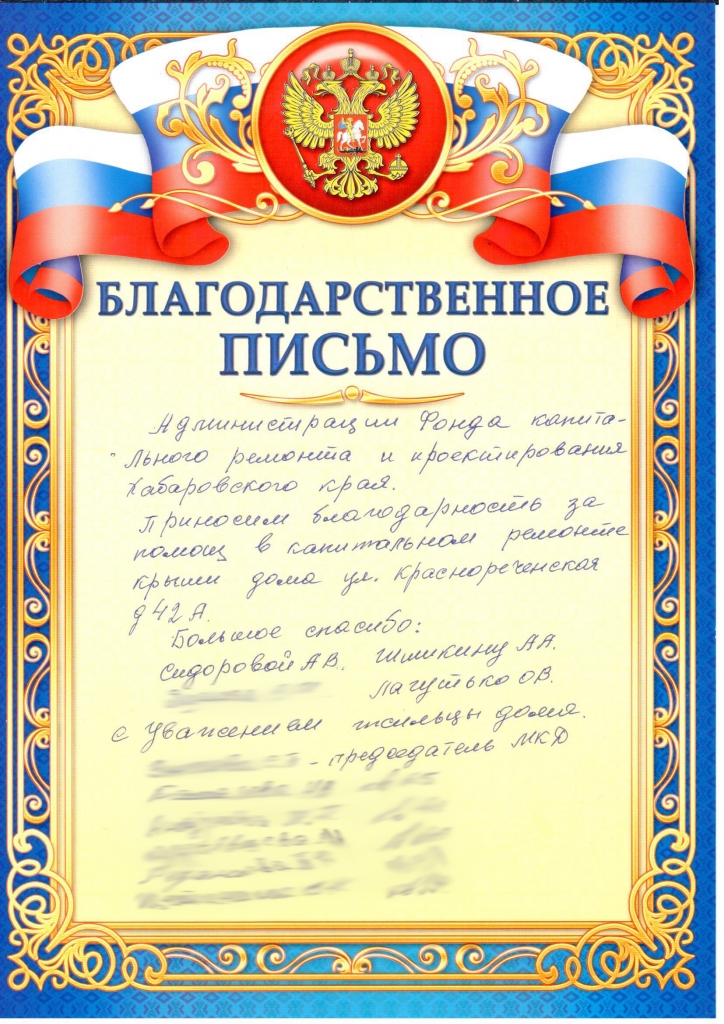 БЛАГОДАРСТВЕННОЕ
ПИСЬМО
Администрации Фонда капита-
льного ремонта и проектирования
Хабаровского края.
Приносим благодарность за
помощ в капитальном ремонте
крыши дома ул. Краснореченская
д 42 А.
Большое спасибо:
Сидоровой А В. Шмикину А А.
Лагутько О В.
С Уважением жильцы дома.
- председатель МКД